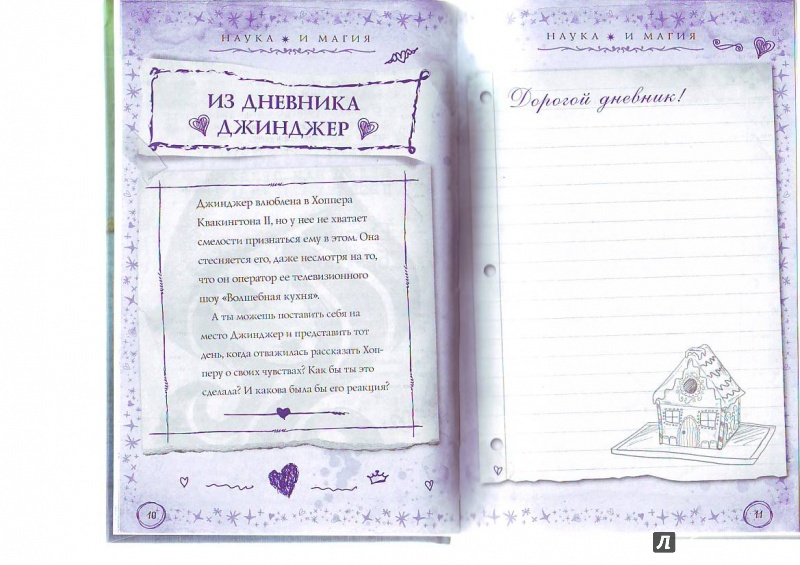 НАУКА И МАГИЯ
ИЗ ДНЕВНИКА
ДЖИНДЖЕР
Джинджер влюблена в Хоппера
Квакингтона II, но у нее не хватает
смелости признаться ему в этом. Она
стесняется его, даже несмотря на то,
что он оператор ее телевизионного
шоу «Волшебная кухня».
А ты можешь поставить себя на
место Джинджер и представить тот
день, когда отважилась рассказать Хоп-
перу о своих чувствах? Как бы ты это
сделала? И какова была бы его реакция?
10
НАУКА И МАГИЯ
Дорогой дневник!
11
Л